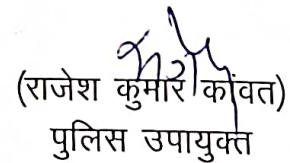 (राजेश कुमार कांवत)
पुलिस उपायुक्त